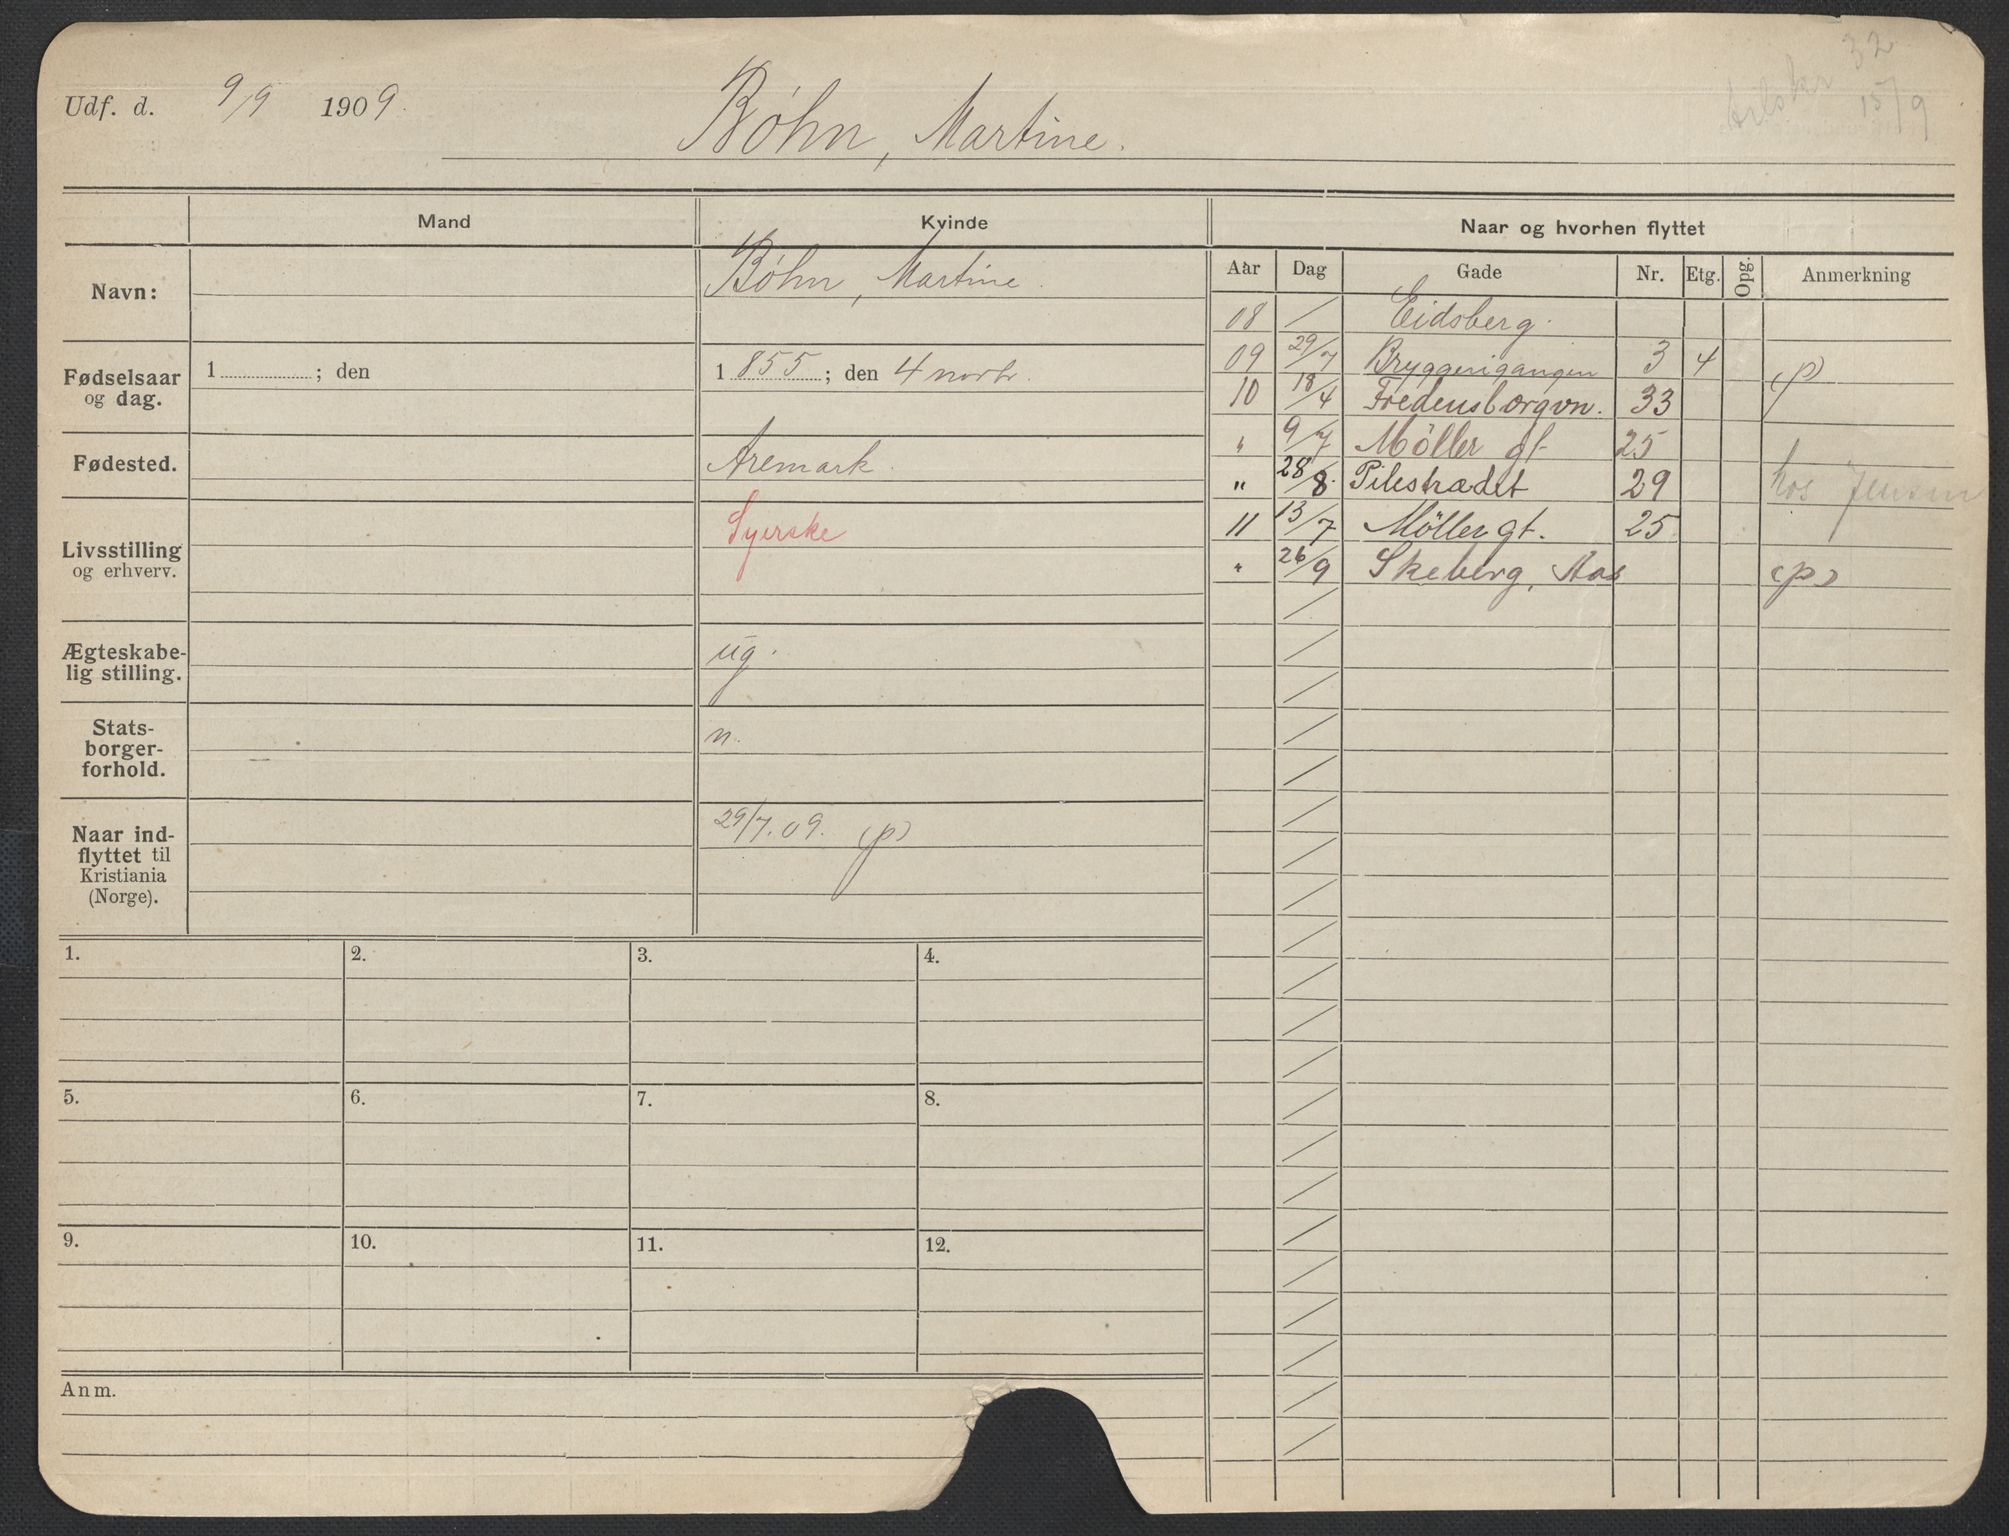 32
15/9
Udf. d. 9/9 1909.
Bøhn, Martine.
Mand
Kvinde
Naar og hvorhen flyttet
Navn:
Bøhn, Martine.
Aar Dag Gade Nr. Etg. Opg. Anmerkning
08 / Eidsberg.
09 29/7 Bryggerigangen 3 4 (p)
10 18/4 Fredensborgvn. 33
" 9/7 Möller gt. 25
" 28/8. Pilestrædet 29 hos Jensen
11 13/7 Möllergt. 25
" 26/9 Skeberg, Aas (p)
Fødselsaar
og dag.
1 ; den
1 855 ; den 4 novbr.
Fødested.
Aremark.
Livsstilling
og erhverv.
Syerske
Ægteskabe-
lig stilling.
ug.
Stats-
borger-
forhold.
n.
Naar ind-
flyttet til
Kristiania
(Norge).
29/7.09. (p)
1. 2. 3. 4.
5. 6. 7. 8.
9. 10. 11. 12.
Anm.